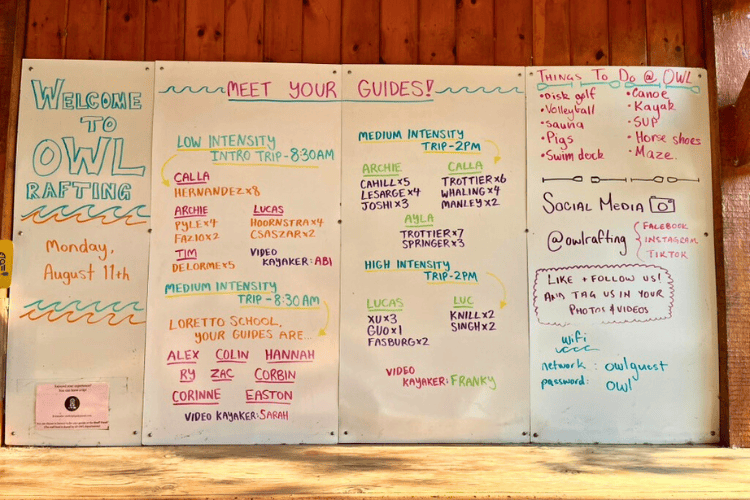 WELCOME
TO
OWL
RAFTING
Monday,
August 11th
MEET YOUR GUIDES!
LOW INTENSITY
INTRO TRIP - 8:30AM
CALLA
HERNANDEZ x 8
ARCHIE
PYLE x 4
FAZIO x 2
LUCAS
HOORNSTRA x 4
CSASZAR x 2
TIM
DELORME x 5
VIDEO
KAYAKER: ABI
MEDIUM INTENSITY
TRIP - 8:30 AM
LORETTO SCHOOL,
YOUR GUIDES ARE...
ALEX COLIN HANNAH
RY ZAC CORBIN
CORINNE EASTON
VIDEO KAYAKER: SARAH
MEDIUM INTENSITY
TRIP - 2PM
ARCHIE
CAHILL x 5
LESARGE x 4
JOSHI x 3
CALLA
TROTTIER x 6
WHALING x 4
MANLEY x 2
AYLA
TROTTIER x 7
SPRINGER x 3
HIGH INTENSITY
TRIP - 2PM
LUCAS
XU x 3
GUO x 1
FASBURG x 2
LUC
KNILL x 2
SINGH x 2
VIDEO
KAYAKER: FRANKY
THINGS TO DO @ OWL
• Disk golf
• Volleyball
• Sauna
• Pigs
• Swim dock
• Canoe
• Kayak
• SUP
• Horse shoes
• Maze
SOCIAL MEDIA
@owlrafting
FACEBOOK
INSTAGRAM
TIKTOK
LIKE + FOLLOW US!
AND TAG US IN YOUR
PHOTOS & VIDEOS
wifi
network: owlguest
password: owl